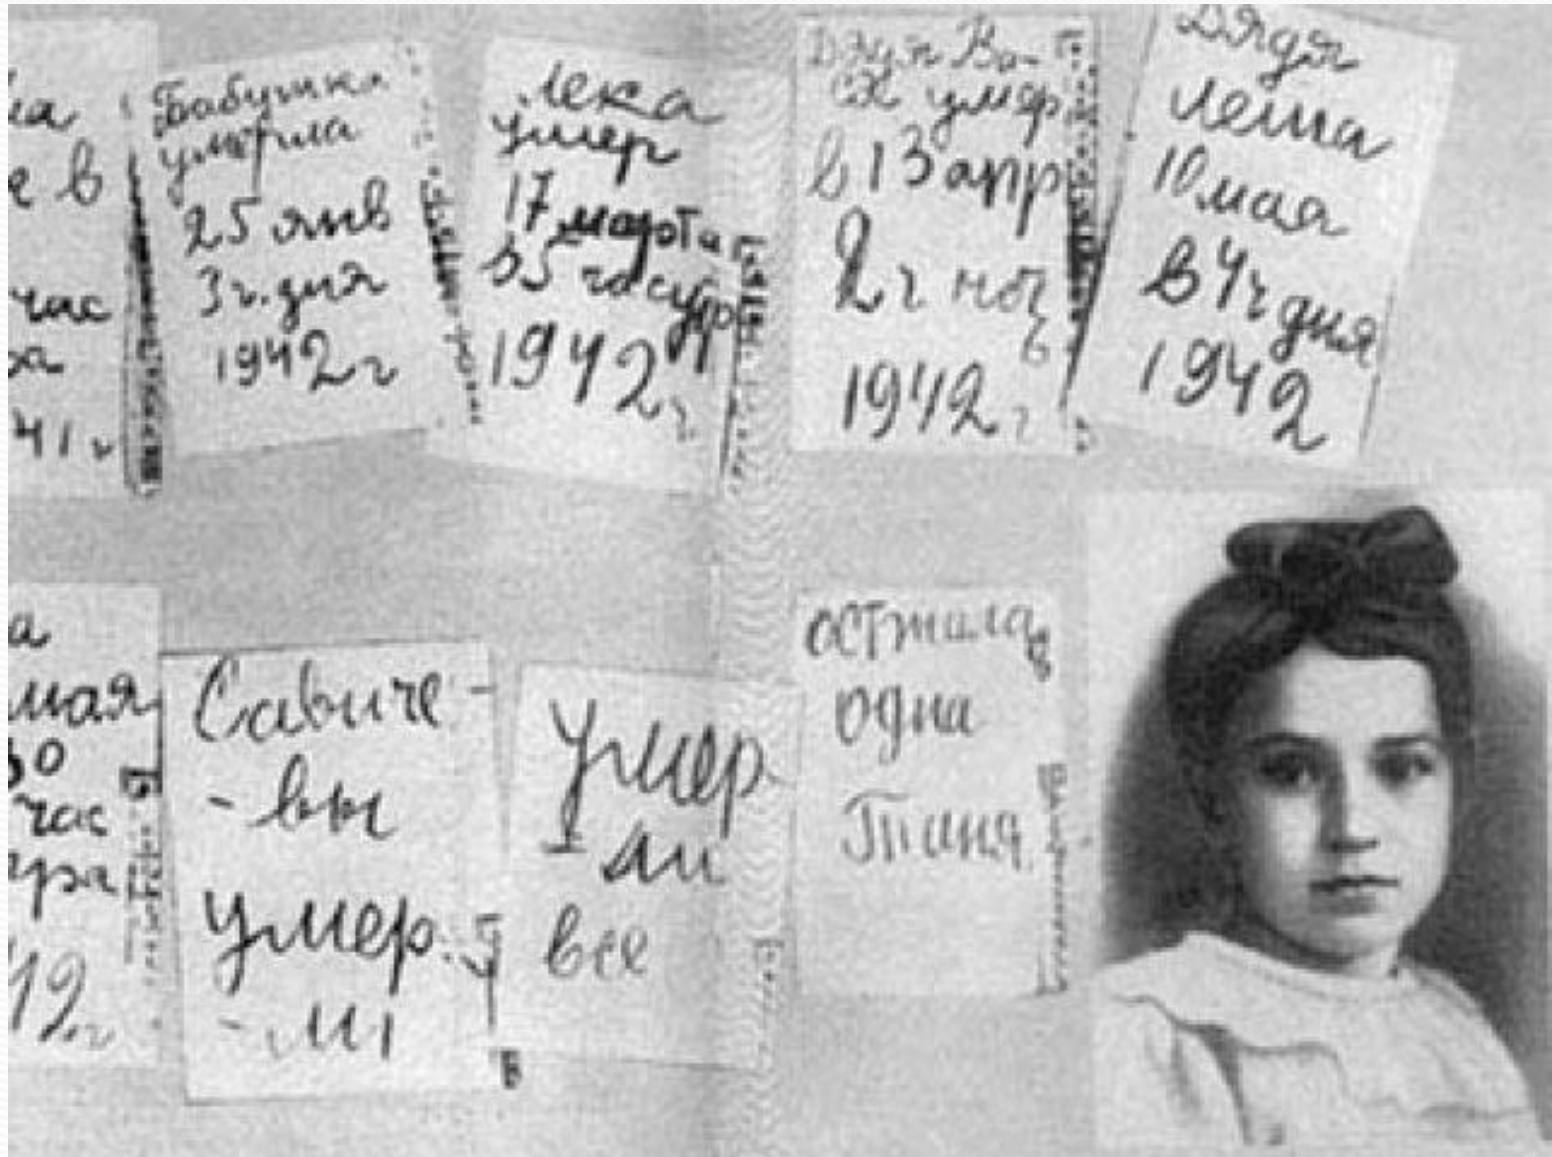 час
41 г
Бабушка
умерла
25 янв
3 ч. дня
1942 г
Лека
умер
17 марта
в 5 час утр
1942 г
Дядя Ва-
ся умер
в 13 апр
2 ч ноч
ь
1942 г
Дядя
Леша
10 мая
в 4 ч дня
1942
мая
30
час
12 г
Савиче -
- вы
умер.
- ли
Умер
- ли
все
осталась
одна
Таня